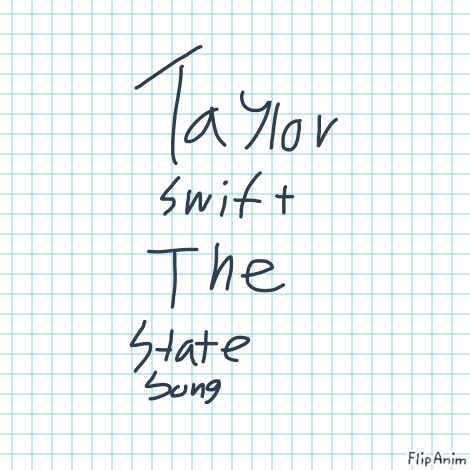 Taylor
swift
The
state
song
FlipAnim